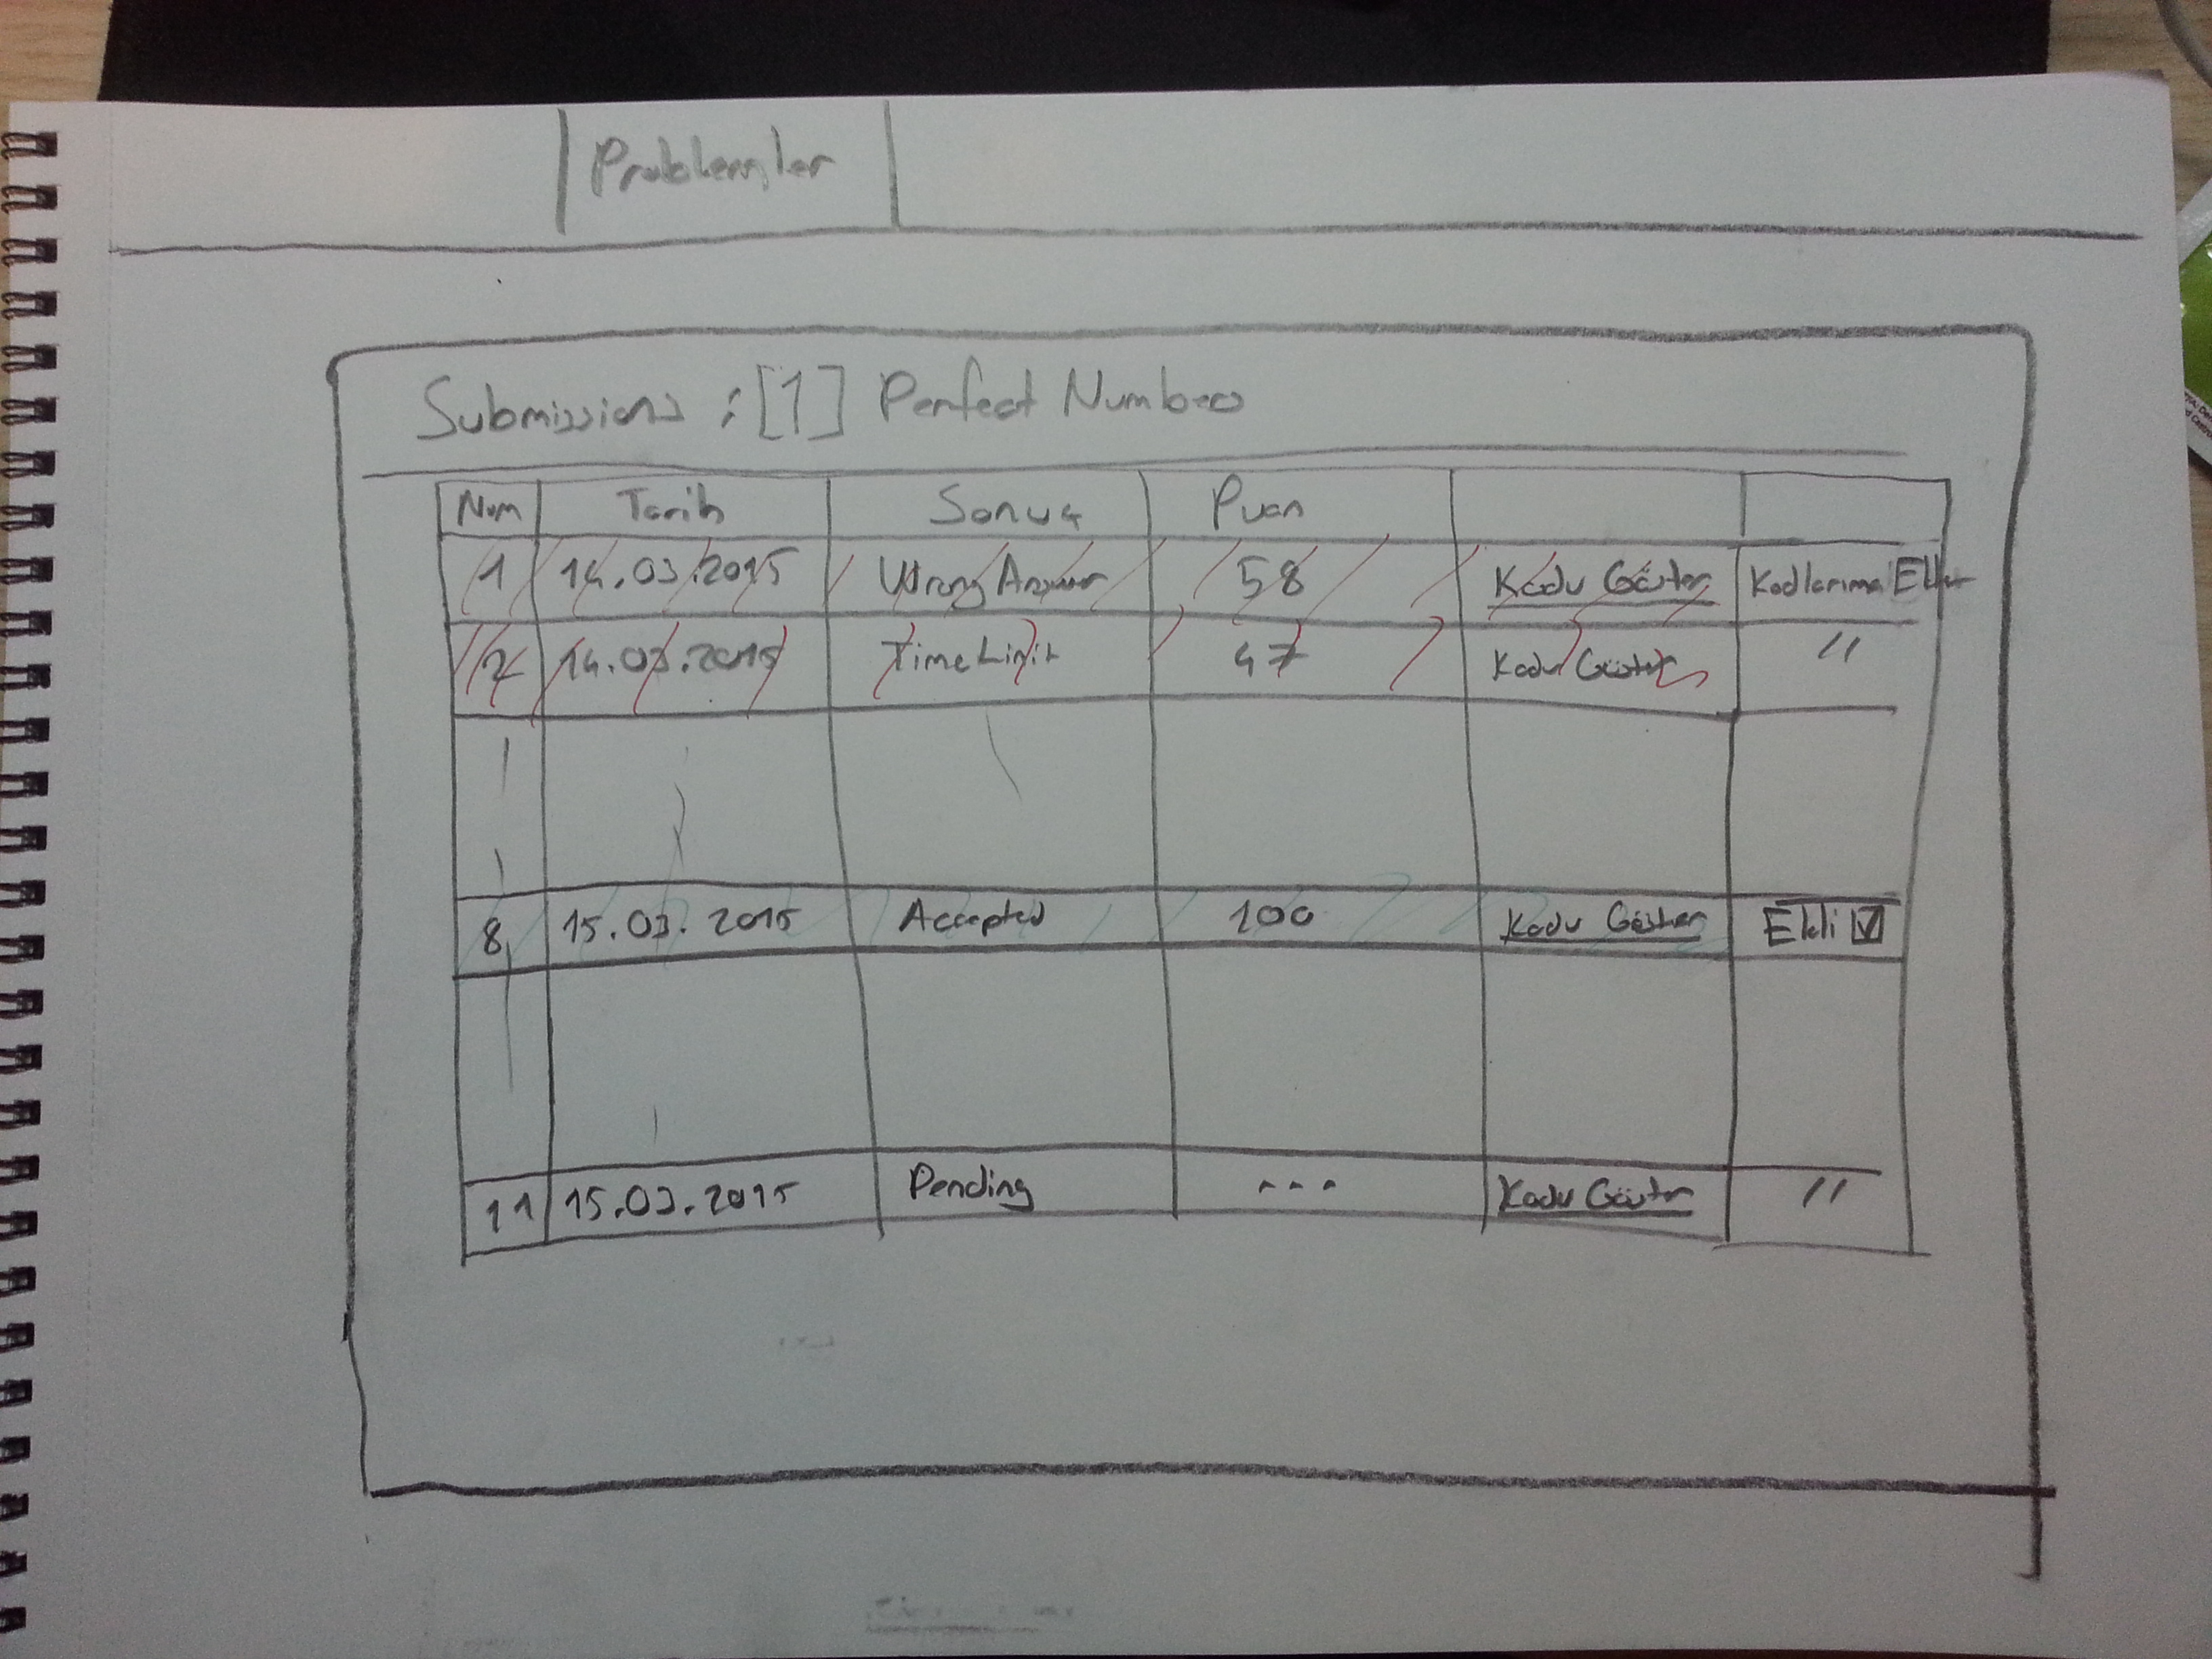 Problemler
Submissions : [1] Perfect Numbers
Num Tarih Sonuç Puan
1 14.03.2015 Wrong Answer 58 Kodu Göster Kodlarıma Ekle
2 14.03.2015 Time Limit 47 Kodu Göster "
8 15.03.2015 Accepted 100 Kodu Göster Ekli
11 15.03.2015 Pending --- Kodu Göster "